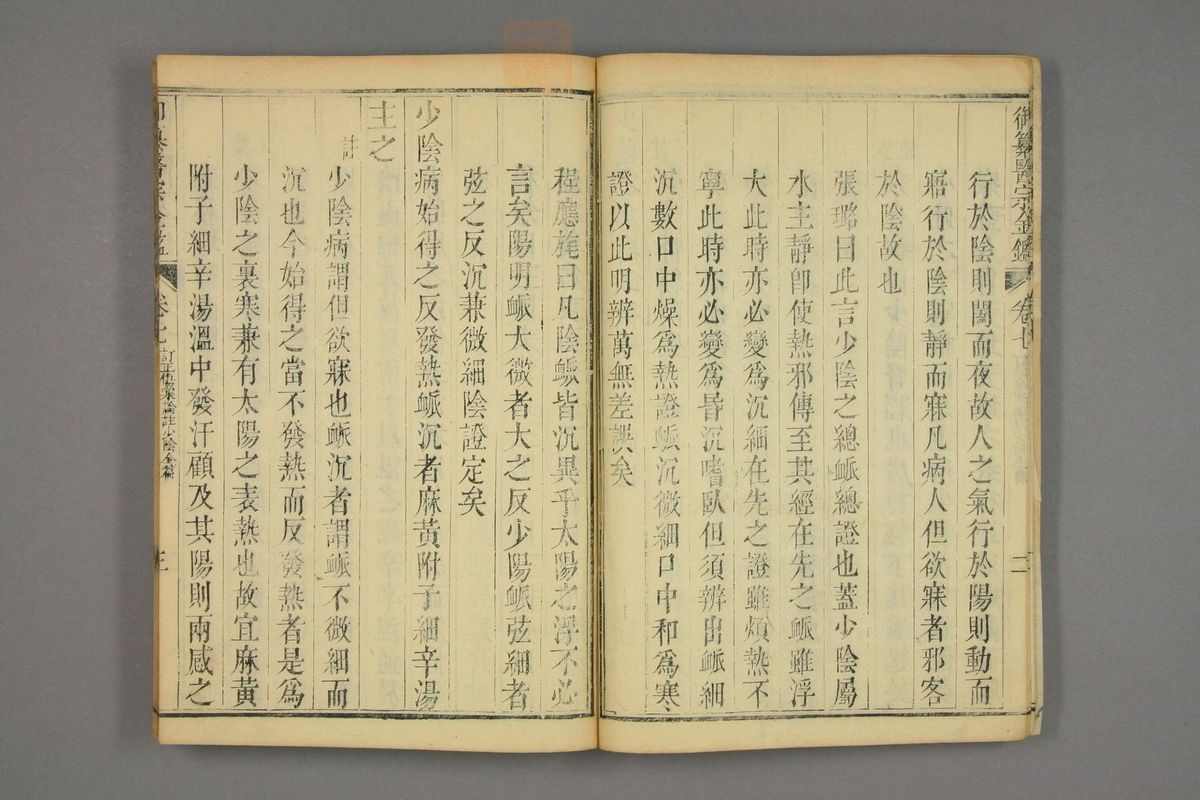 御纂醫宗金鑑 卷七 二
行於陰則闔而夜故人之氣行於陽則動而
寤行於陰則靜而寐凡病人但欲寐者邪客
於陰故也
張璐曰此言少陰之總脈總證也蓋少陰屬
水主靜卽使熱邪傳至其經在先之脈雖浮
大此時亦必變爲沉細在先之證雖煩熱不
寧此時亦必變爲昏沉嗜臥但須辨出脈細
沉數口中燥爲熱證脈沉微細口中和爲寒
證以此明辨萬無差誤矣
程應旄曰凡陰脈皆沉異乎太陽之浮不必
言矣陽明脈大微者大之反少陽脈弦細者
弦之反沉兼微細陰證定矣
少陰病始得之反發熱脈沉者麻黃附子細辛湯
主之
註少陰病謂但欲寐也脈沉者謂脈不微細而
沉也今始得之當不發熱而反發熱者是爲
少陰之裏寒兼有太陽之表熱也故宜麻黃
附子細辛湯溫中發汗顧及其陽則兩感之
御纂醫宗金鑑 卷七 訂正傷寒論註少陰全篇